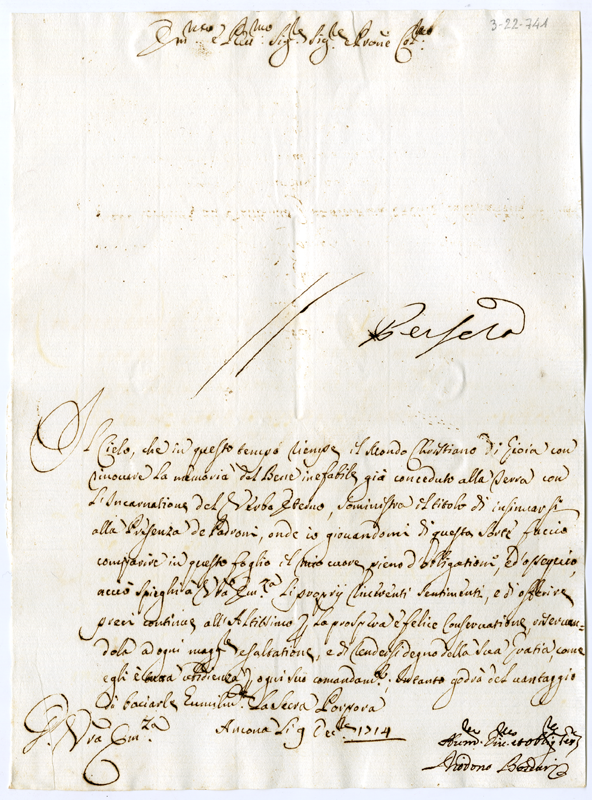 3-22-741
Em.^nto e Rev:^mo Sig.^re Sig.^re e Prone Col.^mo
Il Cielo, che in questo tempo riempe il Mondo Christiano di Gioia con
rinovare la memoria del Bene inefabile già conceduto alla Terra con
l'Incarnatione del Verbo Eterno, somministra il titolo di insinuarsi
alla Presenza de Padroni, onde io giovandomi di questa sorte faccio
comparire in questo foglio il mio cuore pieno d'obligationi, ed'ossequio,
acciò spieghi a V.ra Em.^za li proprij riverenti sentimenti, e di offerire
preci continue all'Altissimo p la prospera e felice Conservatione, riservan-
dola a ogni magg.^re esaltatione, e di rendersi degno della sua gratia, come
egli è tutto ubidienza p ogni suo comandam.^to; intanto godrà del vantaggio
di baciarle humilm.^te la Sacra Porpora
D. V.ra Em.^za
Ancona li 9 Dec.^bre 1714
Hum.^mo Div.^mo et Oblig.^mo Ser.^re